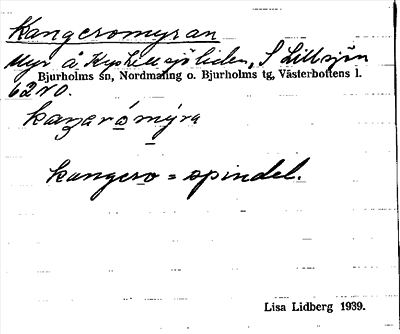 Kangeromyran
Myr å Kyrktjusjöliden, S Lillsjön
Bjurholms sn, Nordmaling o. Bjurholms tg, Västerbottens l.
62 v0.
kaŋərómýra
kangero = spindel.
Lisa Lidberg 1939.